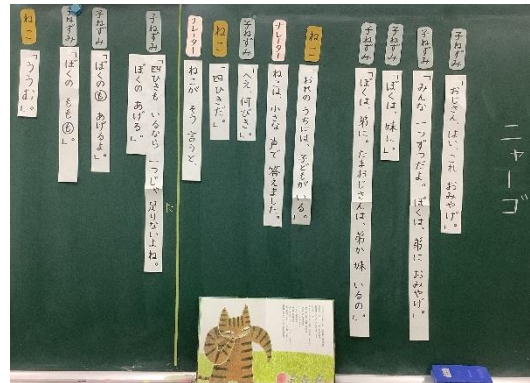 ニャーゴ
子ねずみ
「おじさん、はい、これ おみやげ。」
子ねずみ
「みんな 一つずつだよ。ぼくは、弟に おみやげ。」
子ねずみ
「ぼくは、妹に。」
子ねずみ
「ぼくは、弟に。たまおじさんは、弟か 妹 いるの。」
ねこ
「おれの うちには、子どもが いる。」
ナレーター
ねこは、小さな 声で 答えました。
子ねずみ
「へえ、何びき。」
ねこ
「四ひきだ。」
ナレーター
ねこが そう 言うと、
子ねずみ
「四ひきも いるなら、一つじゃ 足りないよね。
ぼくの あげる。」
子ねずみ
「ぼくのも あげるよ。」
子ねずみ
「ぼくの ももも。」
ねこ
「ううむ。」